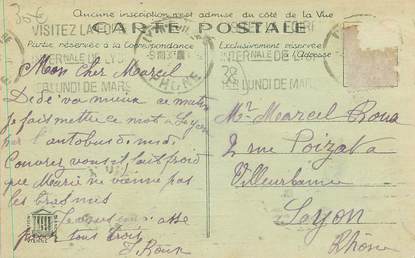 30€
Aucune inscription n'est admise du côté de la Vue
CARTE POSTALE
Partie réservée à la Correspondance
Exclusivement réservée à l'Adresse
VISITEZ LA FOIRE
LUNDI DE MARS
RHÔNE
LUNDI DE MARS
Mon cher Marcel
Dédé va mieux ce matin
je fais mettre ce mot à Lyon
par l'autobus de midi
Couvrez vous il fait froid
que Maurice ne vienne pas
les bras nus
pour tous trois
J. Roux
Mr Marcel Roux
2 rue Poizat
Villeurbanne
Lyon
Rhône